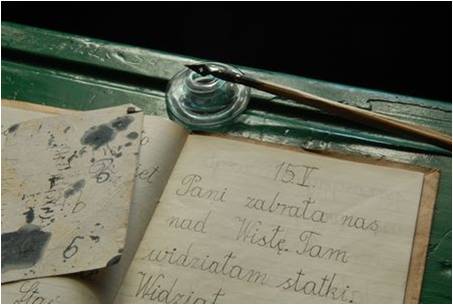 15.V.
Pani zabrała nas
nad Wisłę. Tam
widziałam statki.
Widział
6
b
5